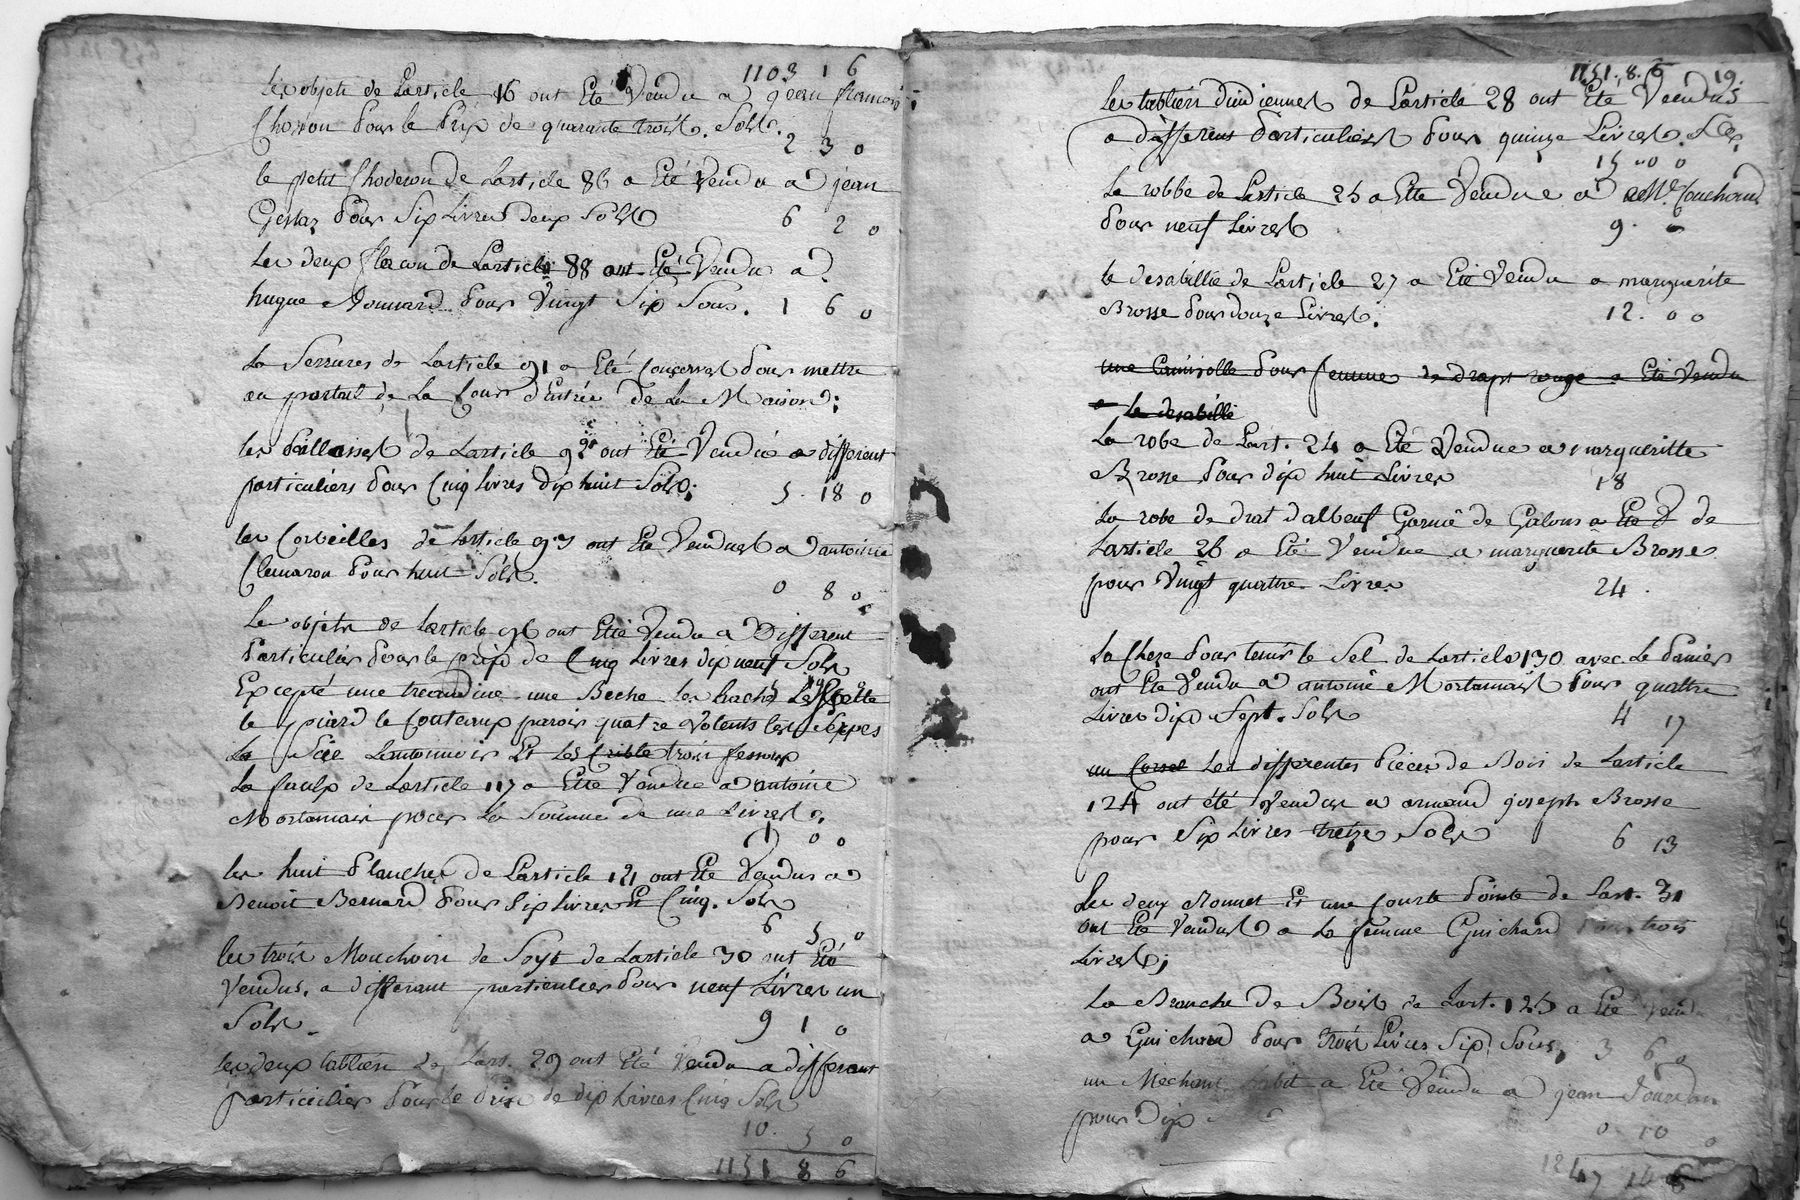 1103 1 6
Les objets de Larticle 16 ont Eté Vendu a jean francois
Chosson pour le prix de quarante trois Sols.
2 3 0
le petit Choderon de Larticle 86 a Eté Vendu a jean
pour Six Livres deux Sols 6 2 0
Les deux flacon de Larticle 88 ont Eté Vendu a
hugue Monnard pour Vingt Six Sous. 1 6 0
La Serrures de Larticle 91 a Eté Conserves pour mettre
au portail de La Cour d'Entrée de La Maison;
les paillasses de Larticle 92 ont Eté Vendue a different
particuliers pour Cinq livres dix huit Sols; 5 18 0
les Corbeilles de Larticle 93 ont Eté Vendues a antoine
Clemaron pour huit Sols.
0 8 0
Le objets de Larticle 96 ont Etté Vendu a Different
particulier pour le prix de Cinq Livres dix neuf Sols
Excepté une une Beche les haches
le le Couteaux paroir quatre Volents les Serpes
La Scie Lantonnoir Et Les Crible trois
La faulx de Larticle 117 a Etté Vendue a antoine
Mortamais pour La Somme de une Livres;
1 0 0
les huit planches de Larticle 121 ont Eté Vendus a
Benoit Bernard pour Six Livres Et Cinq Sols
6 5 0
les trois Mouchoirs de Soys de Larticle 30 ont Eté
Vendus a differant particulier pour neuf Livres un
Sols.
9 1 0
les deux tabliers de Lart. 29 ont Eté Vendu a differant
particulier pour le prix de dix Livres Cinq Sols
10 5 0
1151 8 6
1151. 8. 6 19.
Les tabliers d'indiennes de Larticle 28 ont Eté Vendus
a differens particuliers pour quinze Livres.
15 0 0
La robbe de Larticle 25 a Etté Vendue a Couchoud
pour neuf Livres
9. 0
le desabillée de Larticle 27 a Eté Vendu a marguerite
Brosse pour douze Livres.
12. 0 0
une Camisolle pour femme de draps rouge a Eté Vendu
a le desabillé
La robe de Lart. 24 a Eté Vendue a margueritte
Brosse pour dix huit Livres
18
La robe de drat dalbeuf Garnie de Galons a Eté V de
Larticle 26 a Eté Vendue a marguerite Brosse
pour Vingt quattre Livres
24.
La Cheze pour tenir le Sel de Larticle 130 avec Le panier
ont Eté Vendu a antoine Mortamais pour quattre
Livres dix Sept Sols
4 17
un Corset Les differentes pieces de Bois de Larticle
124 ont été Vendus a armand joseph Brosse
pour Six Livres treize Sols
6 13
Les deux Bonnet Et une Courte pointe de Lart. 31
ont Eté Vendus a La femme Guichard pour trois
Livres;
La Branche de Bois de Lart. 125 a Eté Vendu
a Guichard pour trois Livres Six Sous, 3 6 0
un Mechant habit a Eté Vendu a jean Jourdan
pour Dix
0 10 0
1247 14 6